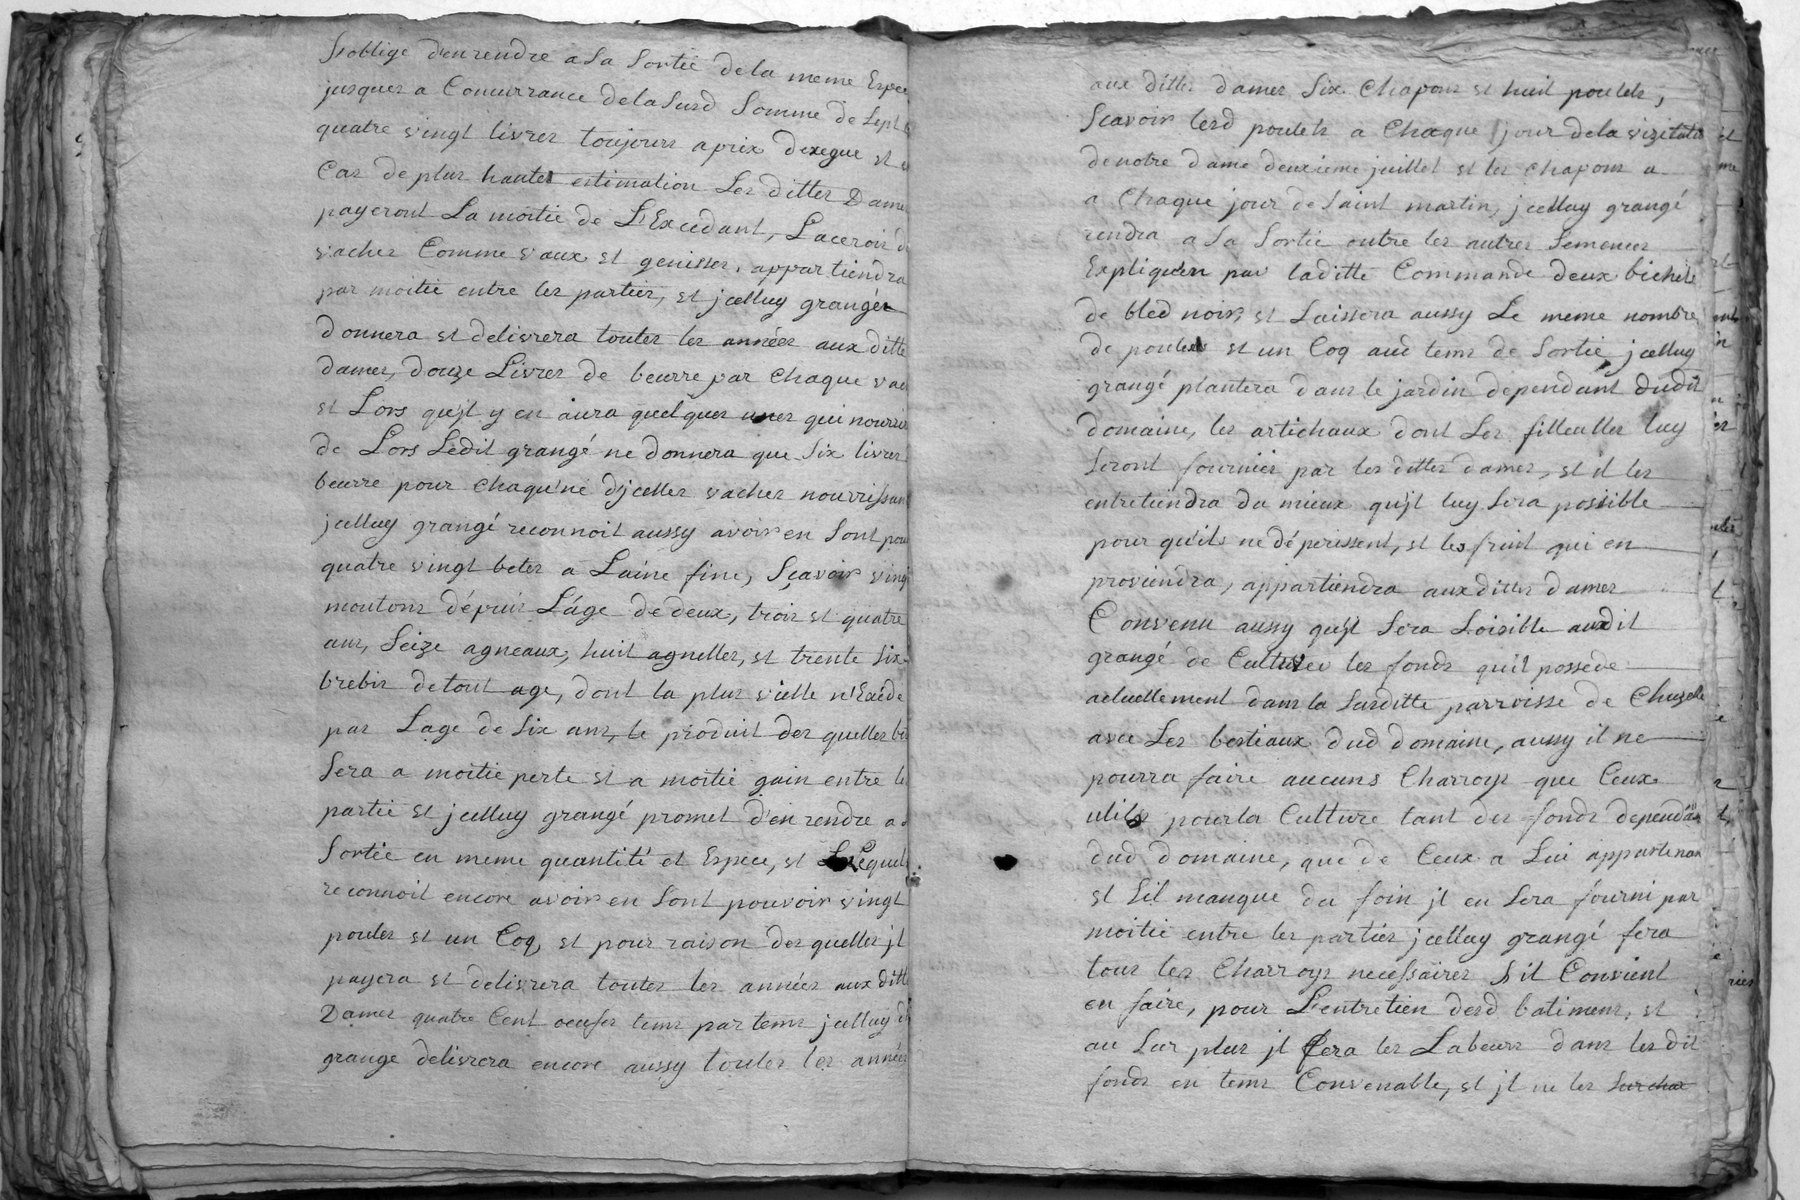 s'oblige d'en rendre a sa sortie de la meme Espece
jusques a Concurrance de la susd somme de sept
quatre vingt livres toujours a prix dexegue et en
Cas de plus haute estimation Les dittes Dames
payeront La moitié de L'Excedant, Lacroir de
vaches Comme vaux et genisses, appartiendra
par moitié entre les parties, et jcelluy granger
donnera et delivrera toutes les années aux dittes
dames, douze Livres de beurre par chaque vache
et Lors qu'jl y en aura quelques unes qui nourrir
de Lors Ledit grangé ne donnera que six livres
beurre pour chaqu'ne d'jcelles vaches nourrissant
jcelluy grangé reconnoit aussy avoir en sont pou
quatre vingt betes a Laine fine, sçavoir vingt
moutons dépuis L'áge de deux, trois et quatre
ans, seize agneaux, huit agnelles, et trente six
brebis de tout age, dont la plus vielle n'Excéde
pas Lage de six ans, le produit des quelles bê
sera a moitié perte et a moitié gain entre les
partie et jcelluy grangé promet d'en rendre a sa
sortie en meme quantité et Espece, et Lequel
reconnoit encore avoir en sont pouvoir vingt
poules et un Coq, et pour raison des quelles jl
payera et delivrera toutes les années aux dittes
Dames quatre Cent oeufs tems par tems jcelluy d
grange delivrera encore aussy toutes les années
aux dittes dames six Chapons et huit poulets,
sçavoir lesd poulets a Chaque jour de la vizitati
de notre dame deuxieme juillet et les chapons a
a Chaque jour de saint martin, jcelluy grangé
rendra a sa sortie outre les autres semences
Expliquéen par laditte Commande deux bichets
de bled noir, et Laissera aussy Le meme nombre
de poules et un Coq aud tems de sortie, jcelluy
grangé plantera dans le jardin dependant dudit
domaine, les artichaux dont Les filleulles luy
seront fournies par les dittes dames, et il les
entretiendra du mieux qu'jl luy sera possible
pour qu'ils ne dépérissent, et les fruit qui en
proviendra, appartiendra aux dittes dames
Convenu aussy qu'jl sera Loisible audit
grangé de Cultiver les fonds qu'il possede
actuellement dans la susditte parroisse de Chuzelle
avec Les bestiaux dud domaine, aussy il ne
pourra faire aucuns Charroys que Ceux
utils pour la Culture tant des fonds dependan
dud domaine, que de Ceux a Lui appartenan
et s'il manque du foin jl en sera fourni par
moitié entre les parties jcelluy grangé fera
tous les Charroys necessaires s'il Convient
en faire, pour L'entretien desd batimens, et
au sur plus jl fera les Labeurs dans les dit
fonds en tems Convenable, et jl ne les surchar